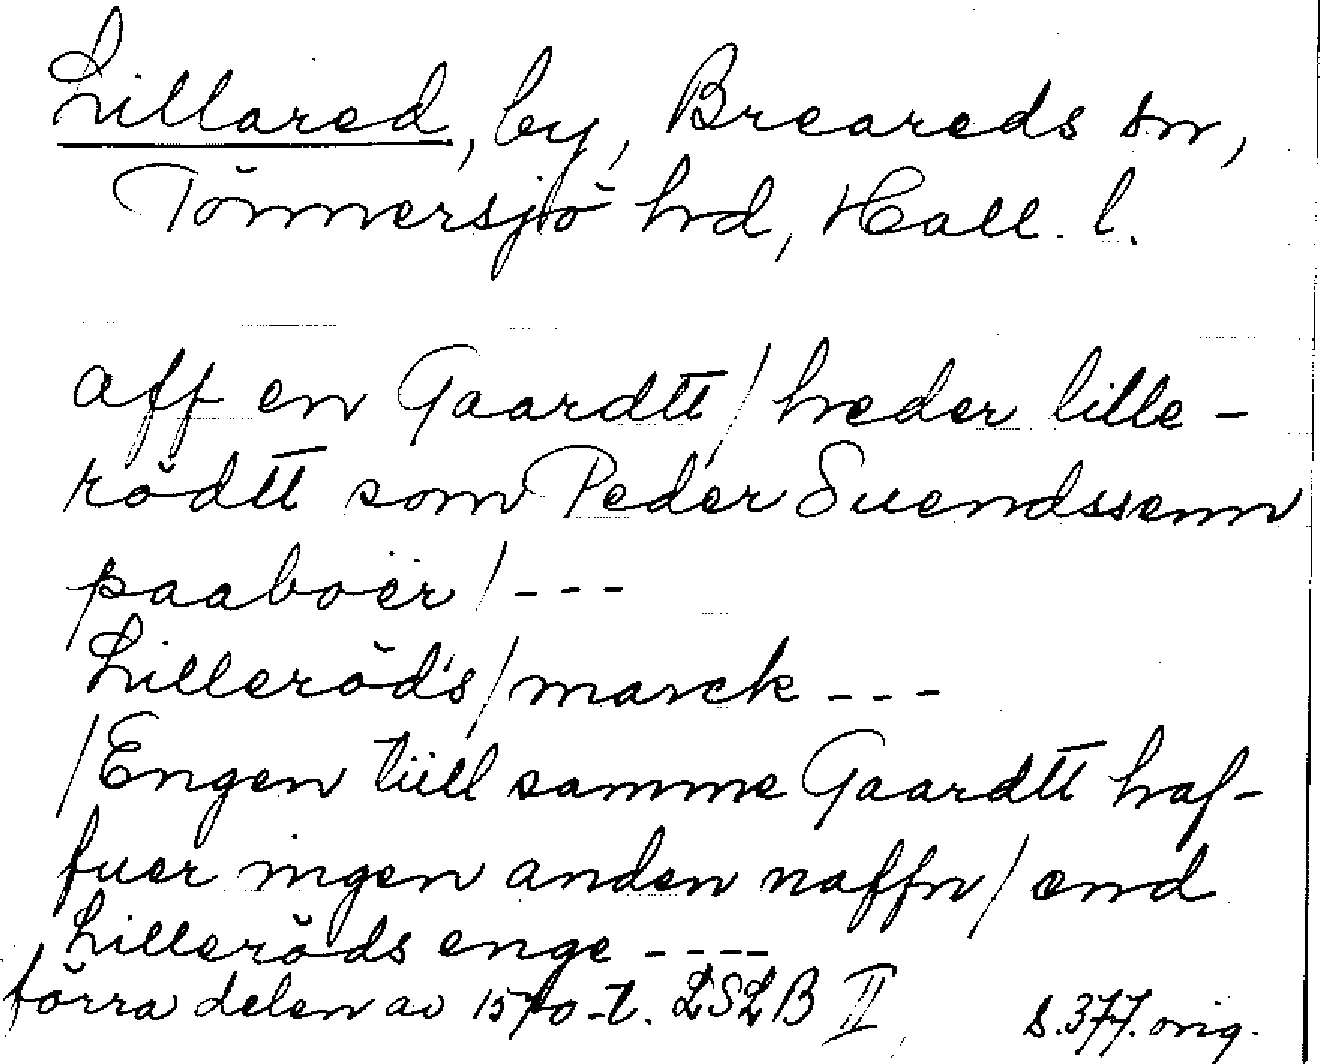 Lillared, by, Breareds sn,
Tönnersjö hd, Hall. l.
aff en Gaardtt / heder lille-
rödtt som Peder Suendssenn
paaboer / ---
Lilleröds / marck ---
/ Engen tiill samme Gaardtt haf-
fuer ingen anden naffn / end
Lilleröds enge ----
förra delen av 1570-t. LSLB II s. 377. orig.